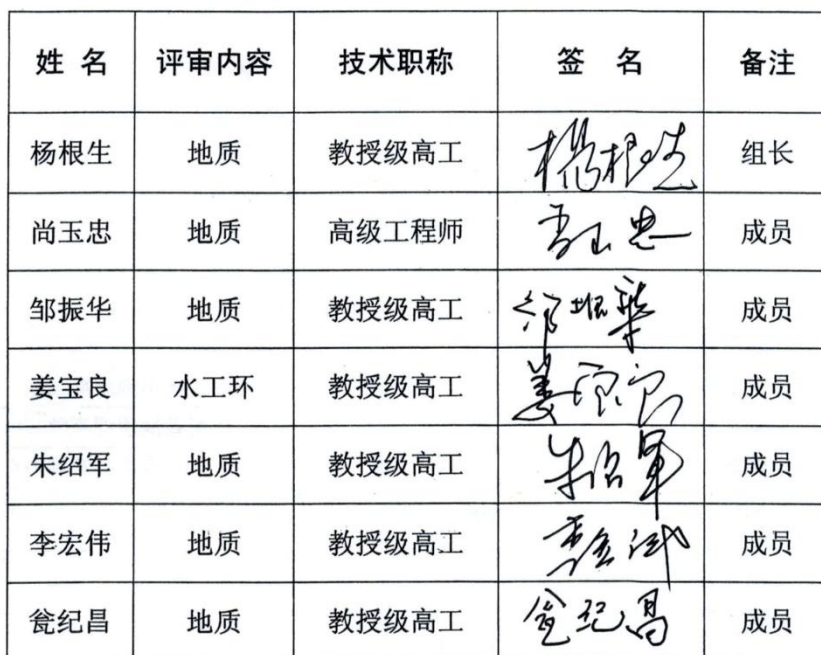 姓 名 评审内容 技术职称 签 名 备注
杨根生 地质 教授级高工 杨根生 组长
尚玉忠 地质 高级工程师 成员
邹振华 地质 教授级高工 邹振华 成员
姜宝良 水工环 教授级高工 姜宝良 成员
朱绍军 地质 教授级高工 朱绍军 成员
李宏伟 地质 教授级高工 成员
瓮纪昌 地质 教授级高工 瓮纪昌 成员